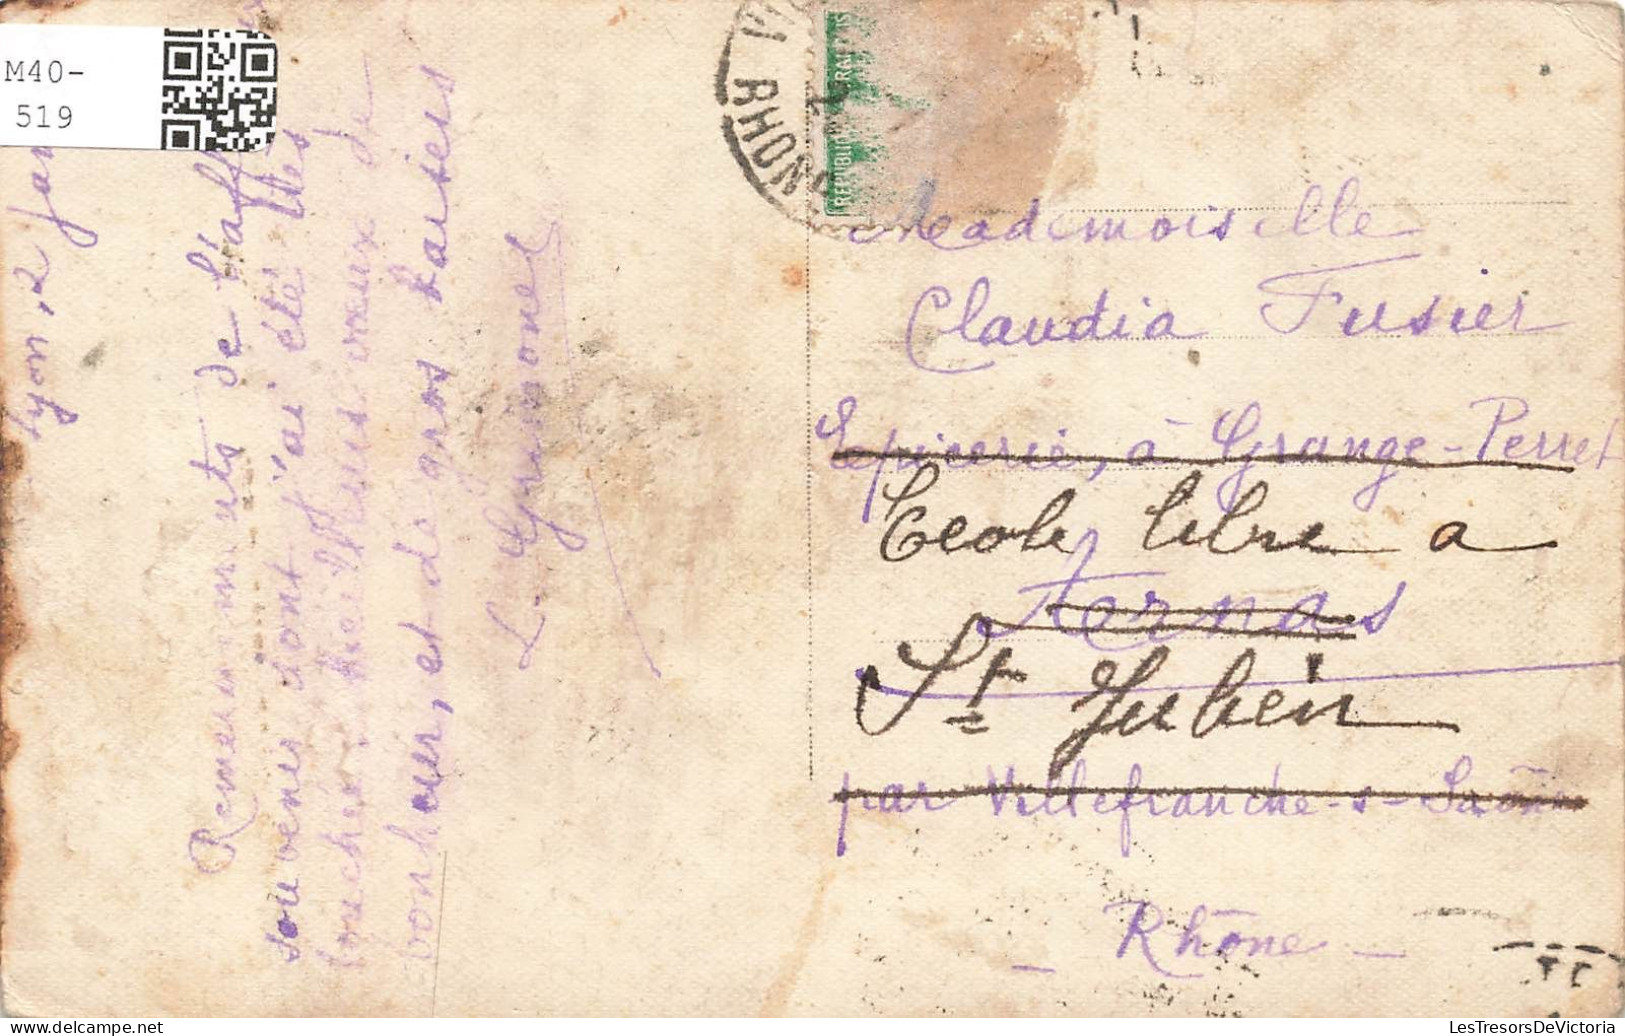 M40-
519
Lyon, 2 Jan
Remerciements de l'aff
souvenir dont j'ai été très
touchée. Meilleurs vœux de
bonheur, et de gros baisers
L. Grimonet
RHONE
REPUBLIQUE FRANCAIS
Mademoiselle
Claudia Fusier
Epicerie, à Grange-Perret
Ecole libre a
Arnas
St Julien
par Villefranche-s-Saône
_ Rhône _
LesTresorsDeVictoria